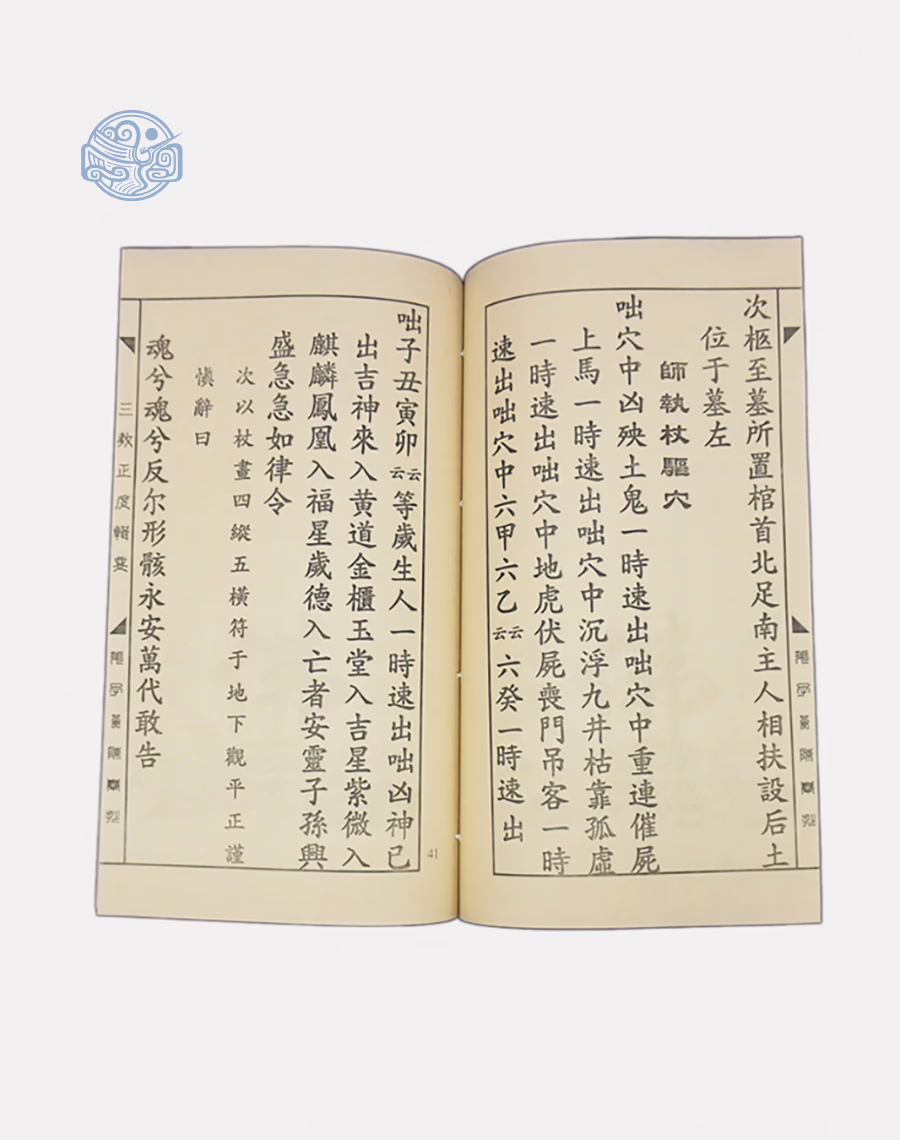 次柩至墓所置棺首北足南主人相扶設后土
位于墓左
師執杖驅穴
咄穴中凶殃土鬼一時速出咄穴中重連催屍
上馬一時速出咄穴中沉浮九井枯靠孤虛
一時速出咄穴中地虎伏屍喪門吊客一時
速出咄穴中六甲六乙云云六癸一時速出
咄子丑寅卯云云等歲生人一時速出咄凶神已
出吉神來入黄道金櫃玉堂入吉星紫微入
麒麟鳳凰入福星歲德入亡者安靈子孫興
盛急急如律令
次以杖畫四縱五橫符于地下觀平正謹
慎辭曰
魂兮魂兮反尔形骸永安萬代敢告
三教正度輯要
41